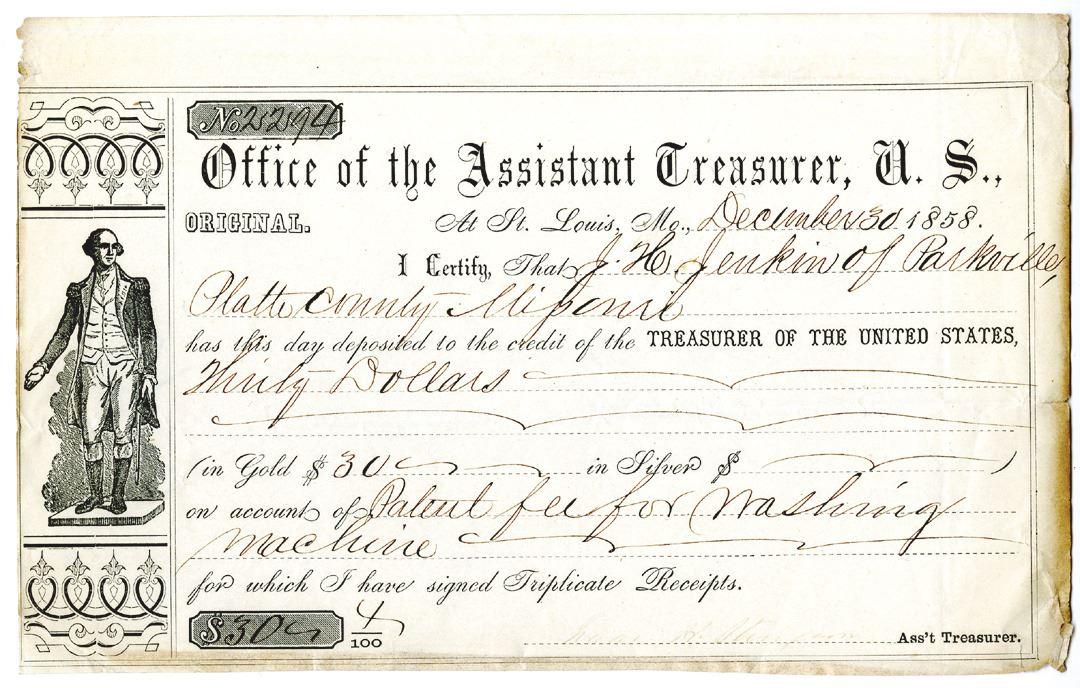 No 2294
Office of the Assistant Treasurer, U. S.,
ORIGINAL. At St. Louis, Mo., December 30 1858.
I Certify, That J. H. Jenkin of Parkville,
Platte County Missouri
has this day deposited to the credit of the TREASURER OF THE UNITED STATES,
Thirty Dollars
(in Gold $ 30 in Silver $ )
on account of Patent fee for Washing
Machine
for which I have signed Triplicate Receipts.
$30 100 Ass't Treasurer.